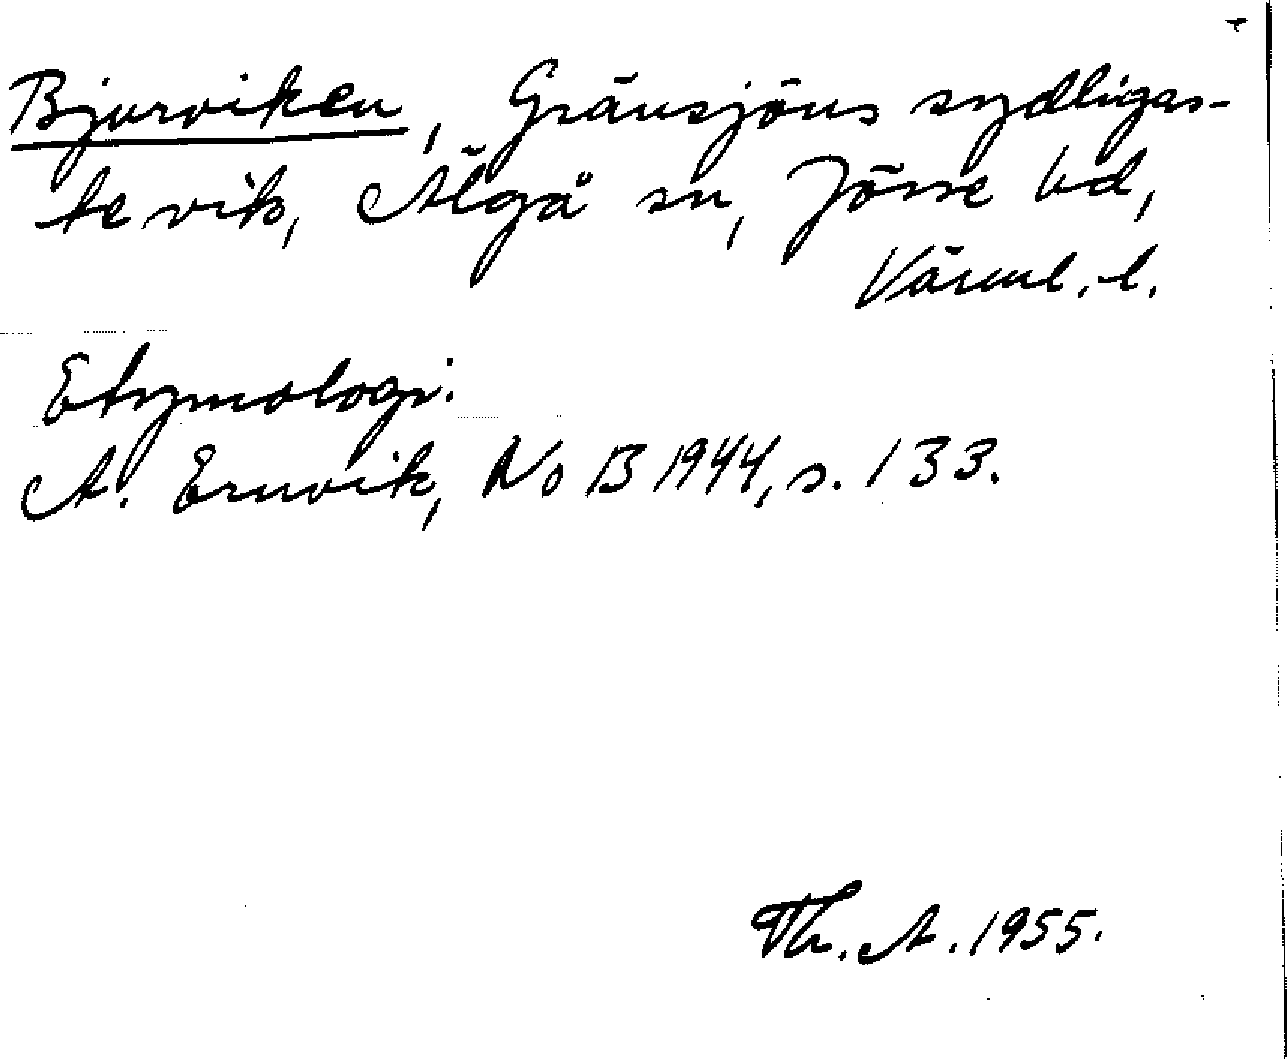 Bjurviken, Gränsjöns sydligas-
te vik, Älgå sn, Jösse hd,
Värml. l.
Etymologi:
A. Ernvik, No B 1944, s. 133.
Th. A. 1955.